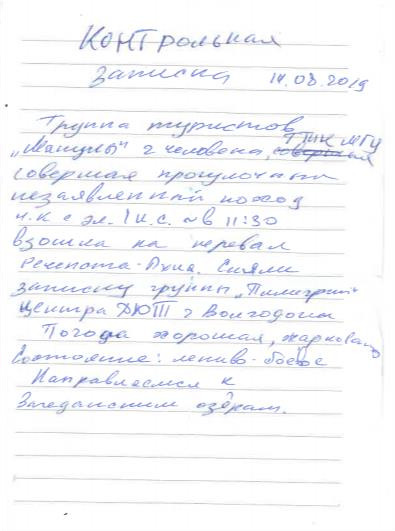 Контрольная
записка 14.08.2019
Группа туристов ТПК МГУ
"Манулы" 2 человека,
совершая прогулочный
незаявленный поход
н.к с эл. 1 к.с. ~ в 11:30
взошла на перевал
Речепста. Сняли
записку группы "Пилигрим"
Центра ДЮТ г Волгодонск
Погода хорошая, жарковато
Состояние: лениво-боевое
Направляемся к
Загеданским озёрам.